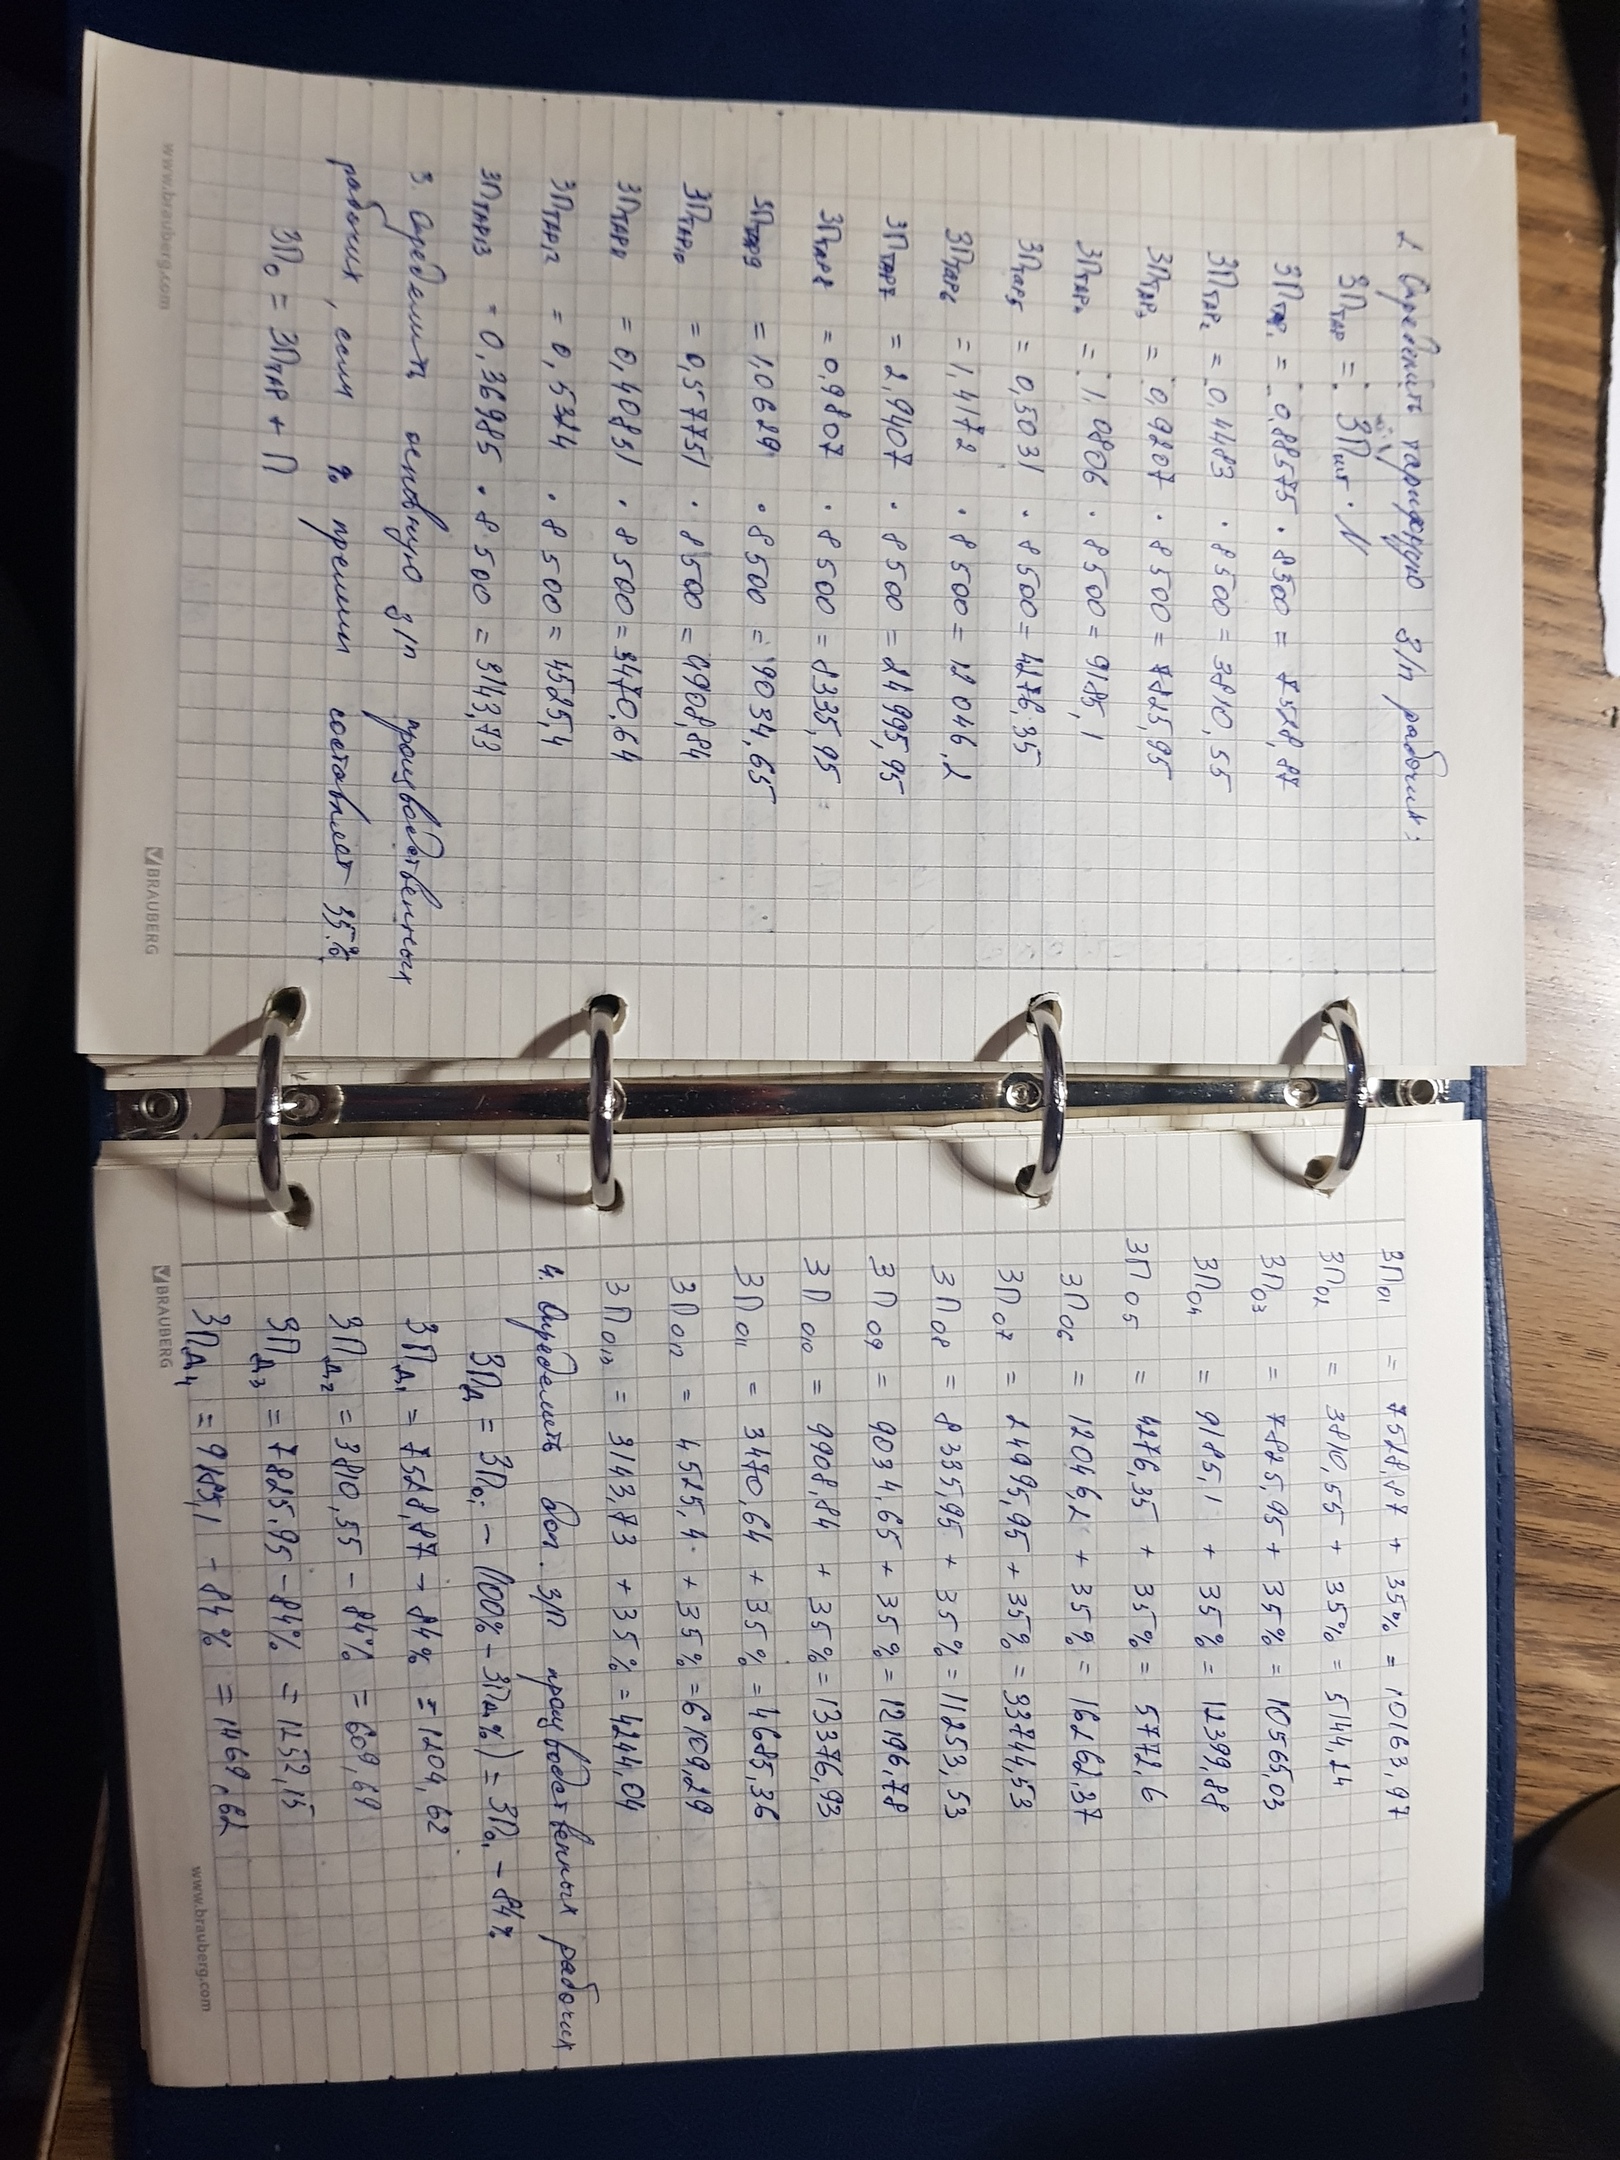 2. Определить тарифную З/п рабочих:
ЗПТАР = ЗПшт · N
ЗПТАР1 = 0,88575 · 8500 = 7528,87
ЗПТАР2 = 0,4483 · 8500 = 3810,55
ЗПТАР3 = 0,9207 · 8500 = 7825,95
ЗПТАР4 = 1,0806 · 8500 = 9185,1
ЗПТАР5 = 0,5031 · 8500 = 4276,35
ЗПТАР6 = 1,4172 · 8500 = 12046,2
ЗПТАР7 = 2,9407 · 8500 = 24995,95
ЗПТАР8 = 0,9807 · 8500 = 8335,95
ЗПТАР9 = 1,0629 · 8500 = 9034,65
ЗПТАР10 = 0,57751 · 8500 = 4908,84
ЗПТАР11 = 0,40831 · 8500 = 3470,64
ЗПТАР12 = 0,5324 · 8500 = 4525,4
ЗПТАР13 = 0,36985 · 8500 = 3143,73
3. Определить основную з/п производственных
рабочих, если % премии составляет 35%.
ЗПО = ЗПТАР + П
www.brauberg.com
BRAUBERG
ЗПО1 = 7528,87 + 35% = 10163,97
ЗПО2 = 3810,55 + 35% = 5144,24
ЗПО3 = 7825,95 + 35% = 10565,03
ЗПО4 = 9185,1 + 35% = 12399,88
ЗПО5 = 4276,35 + 35% = 5772,6
ЗПО6 = 12046,2 + 35% = 16262,37
ЗПО7 = 24995,95 + 35% = 33744,53
ЗПО8 = 8335,95 + 35% = 11253,53
ЗПО9 = 9034,65 + 35% = 12196,78
ЗПО10 = 9908,84 + 35% = 13376,93
ЗПО11 = 3470,64 + 35% = 4685,36
ЗПО12 = 4525,4 + 35% = 6109,29
ЗПО13 = 3143,73 + 35% = 4244,04
4. Определить доп. З/П производственных рабочих
ЗПД = ЗПОi – (100% – ЗПД%) = ЗПОi – 84%
ЗПД1 = 7528,87 – 84% = 1204,62
ЗПД2 = 3810,55 – 84% = 609,69
ЗПД3 = 7825,95 – 84% = 1252,15
ЗПД4 = 9185,1 – 84% = 1469,62
BRAUBERG
www.brauberg.com